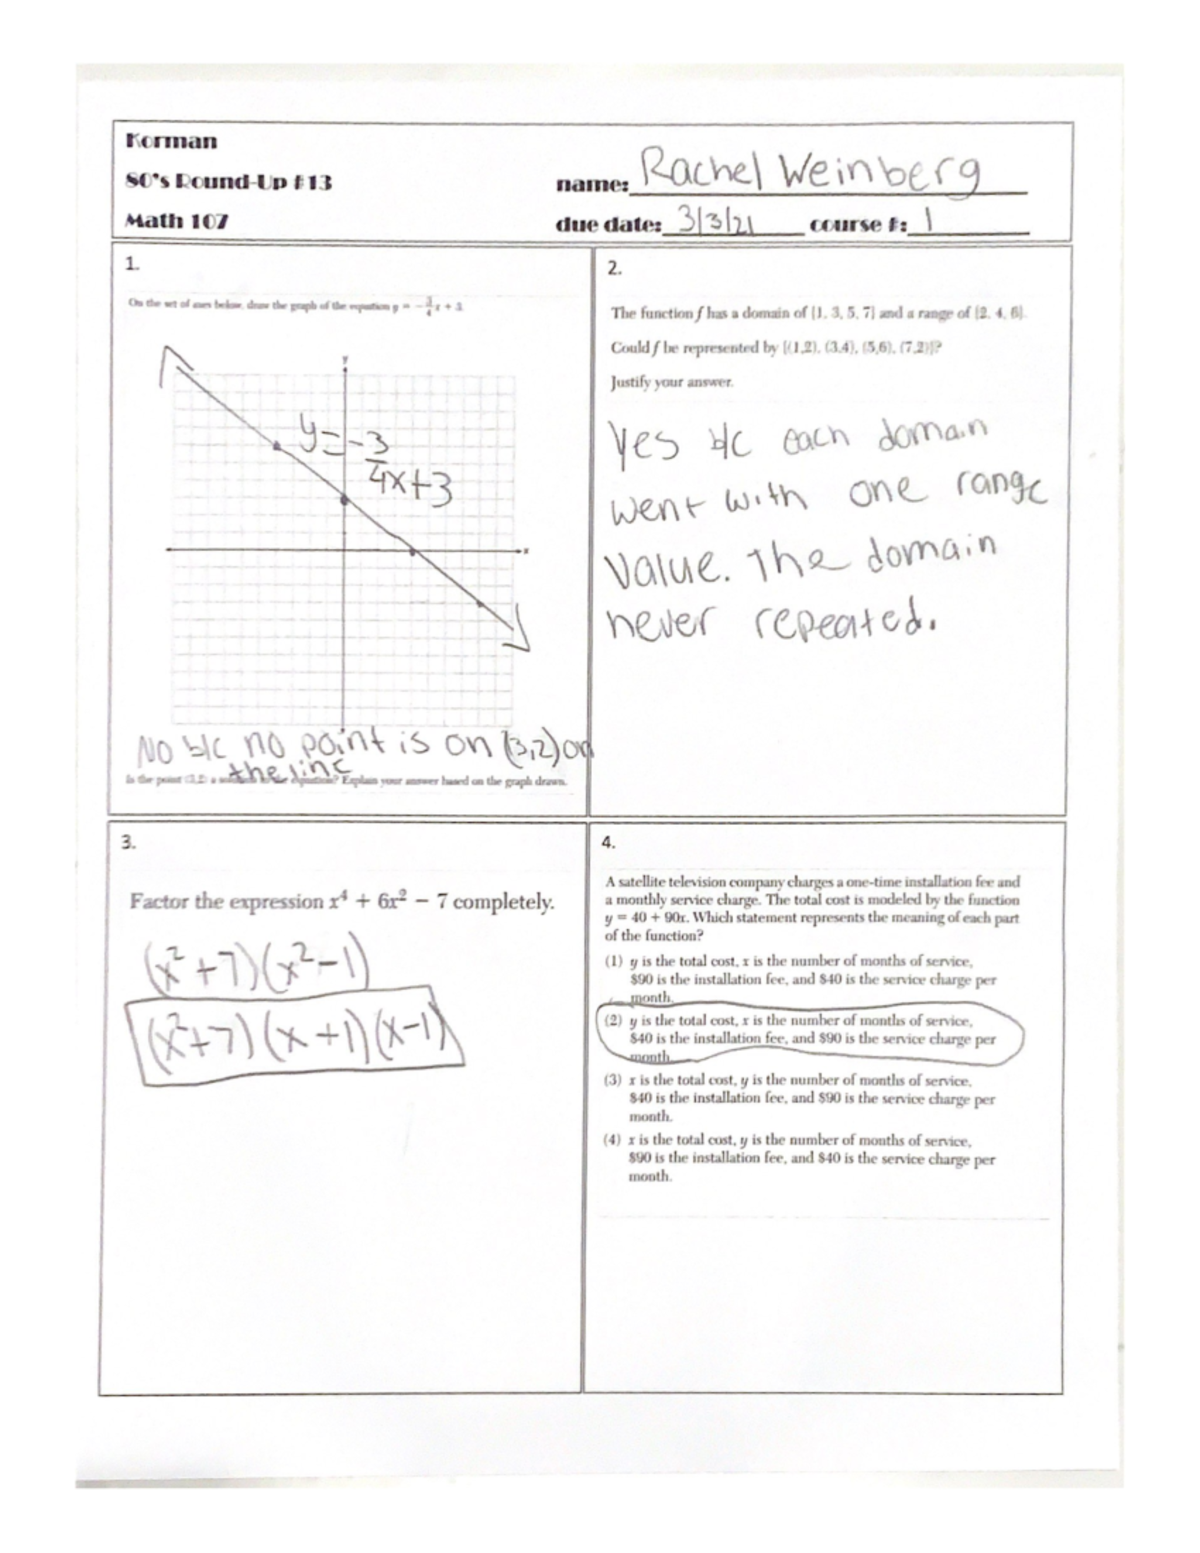 Korman
80's Round-Up #13
name: Rachel Weinberg
Math 107
due date: 3/3/21 course #: 1
1.
On the set of axes below, draw the graph of the equation y = -3/4x + 3.
y
y=-3/4x+3
x
No b/c no point is on (3,2) on
the line
Is the point (3,2) a solution to the equation? Explain your answer based on the graph drawn.
2.
The function f has a domain of {1, 3, 5, 7} and a range of {2, 4, 6}.
Could f be represented by {(1,2), (3,4), (5,6), (7,2)}?
Justify your answer.
Yes b/c each domain
went with one range
value. The domain
never repeated.
3.
Factor the expression x⁴ + 6x² − 7 completely.
(x²+7)(x²-1)
(x²+7)(x+1)(x-1)
4.
A satellite television company charges a one-time installation fee and
a monthly service charge. The total cost is modeled by the function
y = 40 + 90x. Which statement represents the meaning of each part
of the function?
(1) y is the total cost, x is the number of months of service,
$90 is the installation fee, and $40 is the service charge per
month.
(2) y is the total cost, x is the number of months of service,
$40 is the installation fee, and $90 is the service charge per
month.
(3) x is the total cost, y is the number of months of service,
$40 is the installation fee, and $90 is the service charge per
month.
(4) x is the total cost, y is the number of months of service,
$90 is the installation fee, and $40 is the service charge per
month.